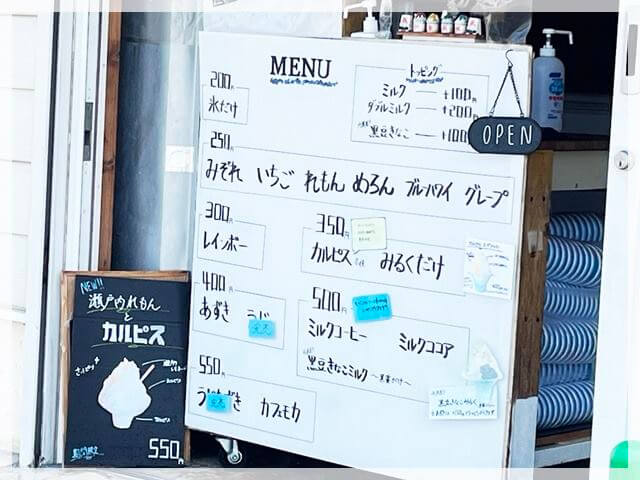 MENU
200円
氷だけ
トッピング
ミルク ── +100円
ダブルミルク ── +200円
黒豆きなこ ── +100円
OPEN
250円
みぞれ いちご れもん めろん ブルーハワイ グレープ
300円
レインボー
350円
カルピス みるくだけ
400円
あずき
完売
500円
ミルクコーヒー ミルクココア
黒豆きなこミルク ～黒蜜がけ～
550円
完売
カフェモカ
NEW!!
瀬戸内れもん
と
カルピス
550円